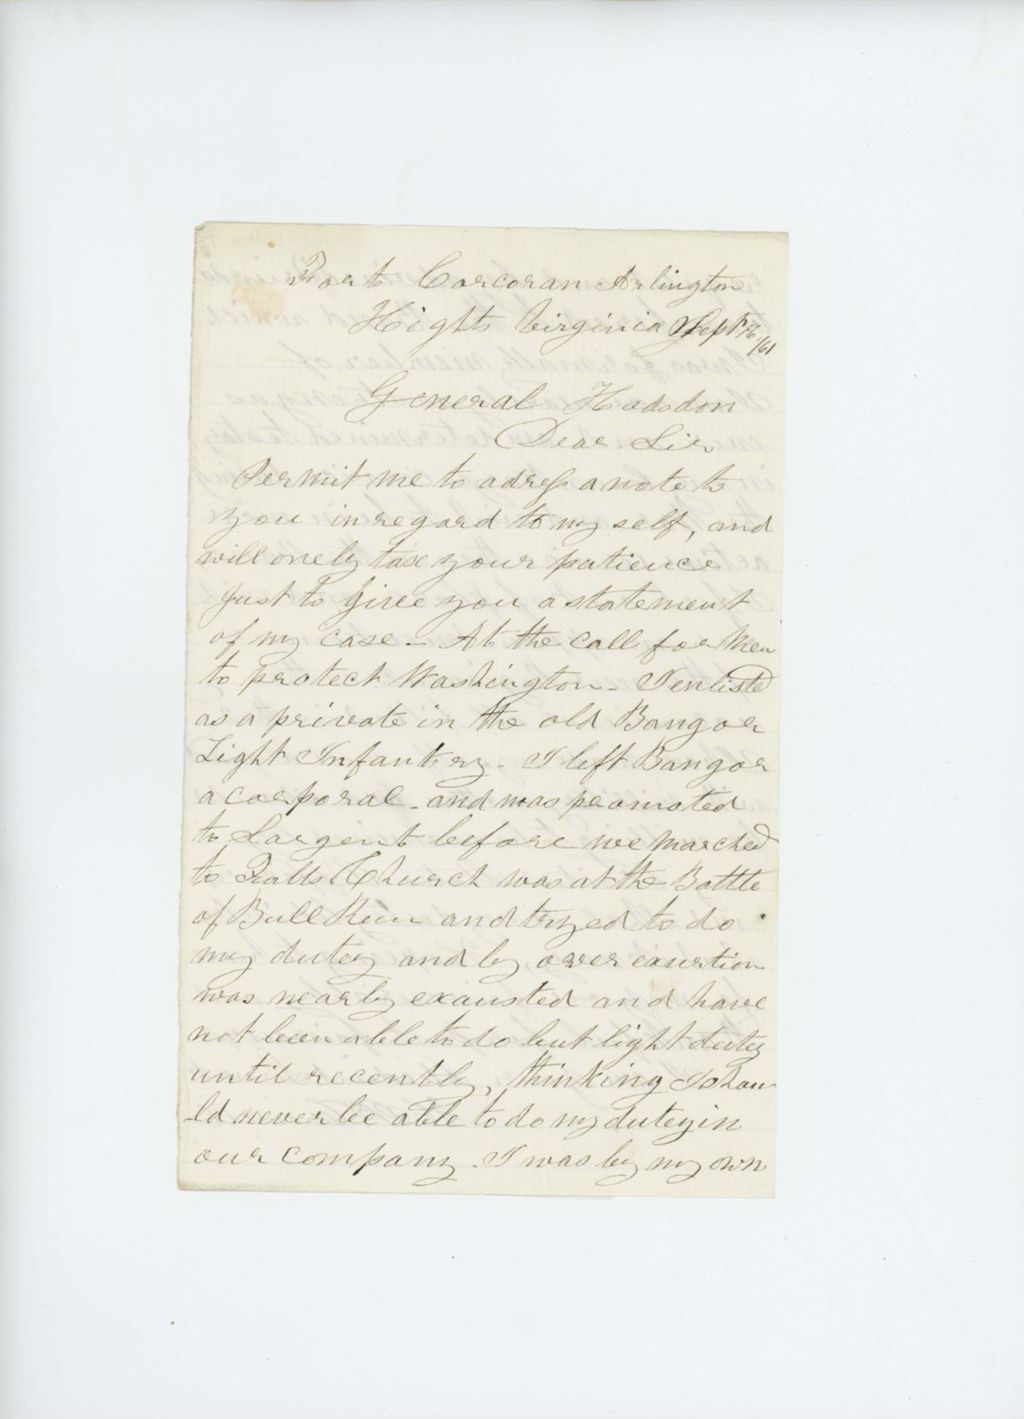 Fort Corcoran Arlington
Hights Virginia Sept 16
/61
General Hodsdon
Dear Sir
Permit me to adress a note to
you in regard to my self, and
will onely tax your patience
just to give you a statement
of my case - At the call for Men
to protect Washington - I enlisted
as a private in the old Bangor
Light Infantry - I left Bangor
a corporal - and was promoted
to Sargent before we marched
to Falls Church was at the Battle
of Bull Run and tryed to do
my dutey and by over exurtion
was nearly exausted and have
not been able to do but light dutey
until recently, thinking I shou
-ld never be able to do my dutey in
our company - I was by my own